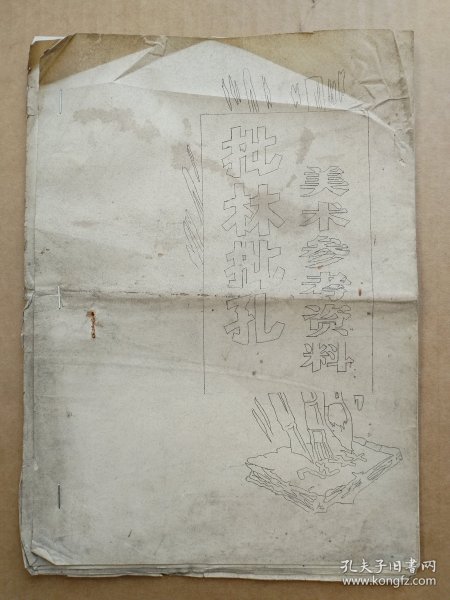 批林批孔
美术参考资料
孔夫子旧书网
www.kongfz.com